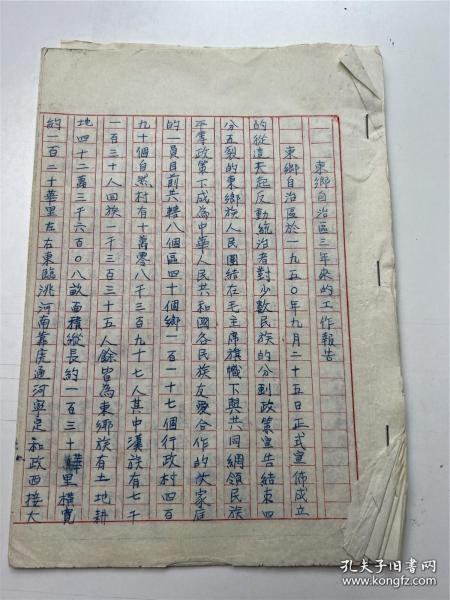 東鄉自治區三年來的工作報告
東鄉自治區於一九五〇年九月二十五日正式宣佈成立
的從這天起反動統治者對少數民族的分割政策宣告結束四
分五裂的東鄉族人民團結在毛主席旗幟下與共同綱領民族
平等政策下成為中華人民共和國各民族友愛合作的大家庭
的一員目前共轄八個區四十個鄉一百一十七個行政村四百
九十個自然村有十萬零八千三百九十七人其中漢族有七千
一百三十人回族一千三百三十五人餘皆為東鄉族有土地耕
地四十二萬三千六百〇八畝面積縱長約一百三十華里橫寬
約一百二十華里左右東臨洮河南靠廣通河與是和政西接大
孔夫子旧书网
www.kongfz.com